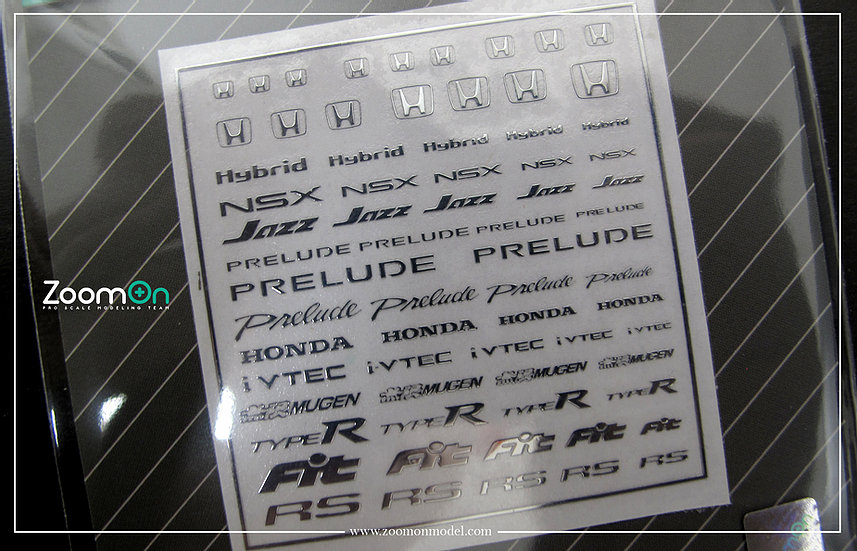 Hybrid Hybrid Hybrid Hybrid Hybrid
NSX NSX NSX NSX NSX
Jazz Jazz Jazz Jazz Jazz
PRELUDE PRELUDE PRELUDE PRELUDE
PRELUDE PRELUDE
Prelude Prelude Prelude Prelude
HONDA HONDA HONDA HONDA
i VTEC i-VTEC i VTEC i VTEC i VTEC
MUGEN MUGEN MUGEN MUGEN
TYPE R TYPE R TYPE R TYPE R
Fit Fit Fit Fit Fit
RS RS RS RS RS
ZoomOn
PRO SCALE MODELING TEAM
www.zoomonmodel.com